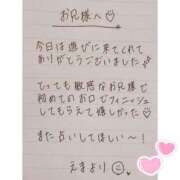 お兄様へ♡
今日は遊びに来てくれて
ありがとうございました
とっても敏感なお兄様で
初めてのお口でフィニッシュ
してもらえて嬉しかった
また会いしてほしい〜！
えまより